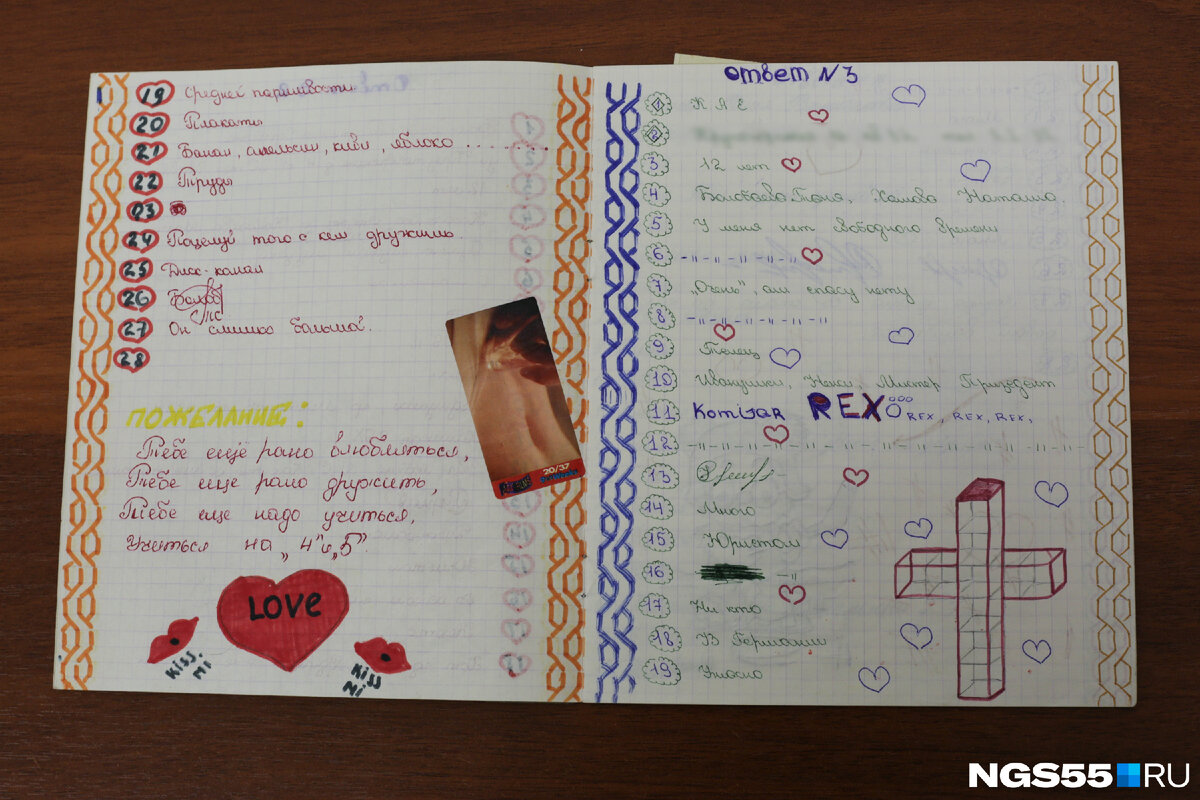 19 Средней паршивости
20 Плакаты
21 Банан, апельсин, киви, яблоко ........
22 Труды
23
24 Поцелуй того с кем дружишь.
25 Диск-канал
26
27 Он слишко большой.
28
ПОЖЕЛАНИЕ:
Тебе ещё рано влюбляться,
Тебе еще рано дружить,
Тебе еще надо учиться,
Учиться на „4" и „5".
LOVE
Kiss. Mi
Kiss Mi
20/37
ответ N 3
1 К А Е
2
3 12 лет
4 Таня, Наташа.
5 У меня нет свободного времени
6 -"-"-"-"-"-"-"
7 „Очень", аш спасу нету
8 -"-"-"-"-"-"
9 Телец
10 Иванушки, Ненси, Мистер Призедент
11 Komisar REX REX, REX, REX,
12 -"-"-"-"-"-"-"-"-"-"-"
13
14 Много
15 Юристом
16 -"
17 Ни кто
18 В Германии
19 Ужасно
NGS55.RU